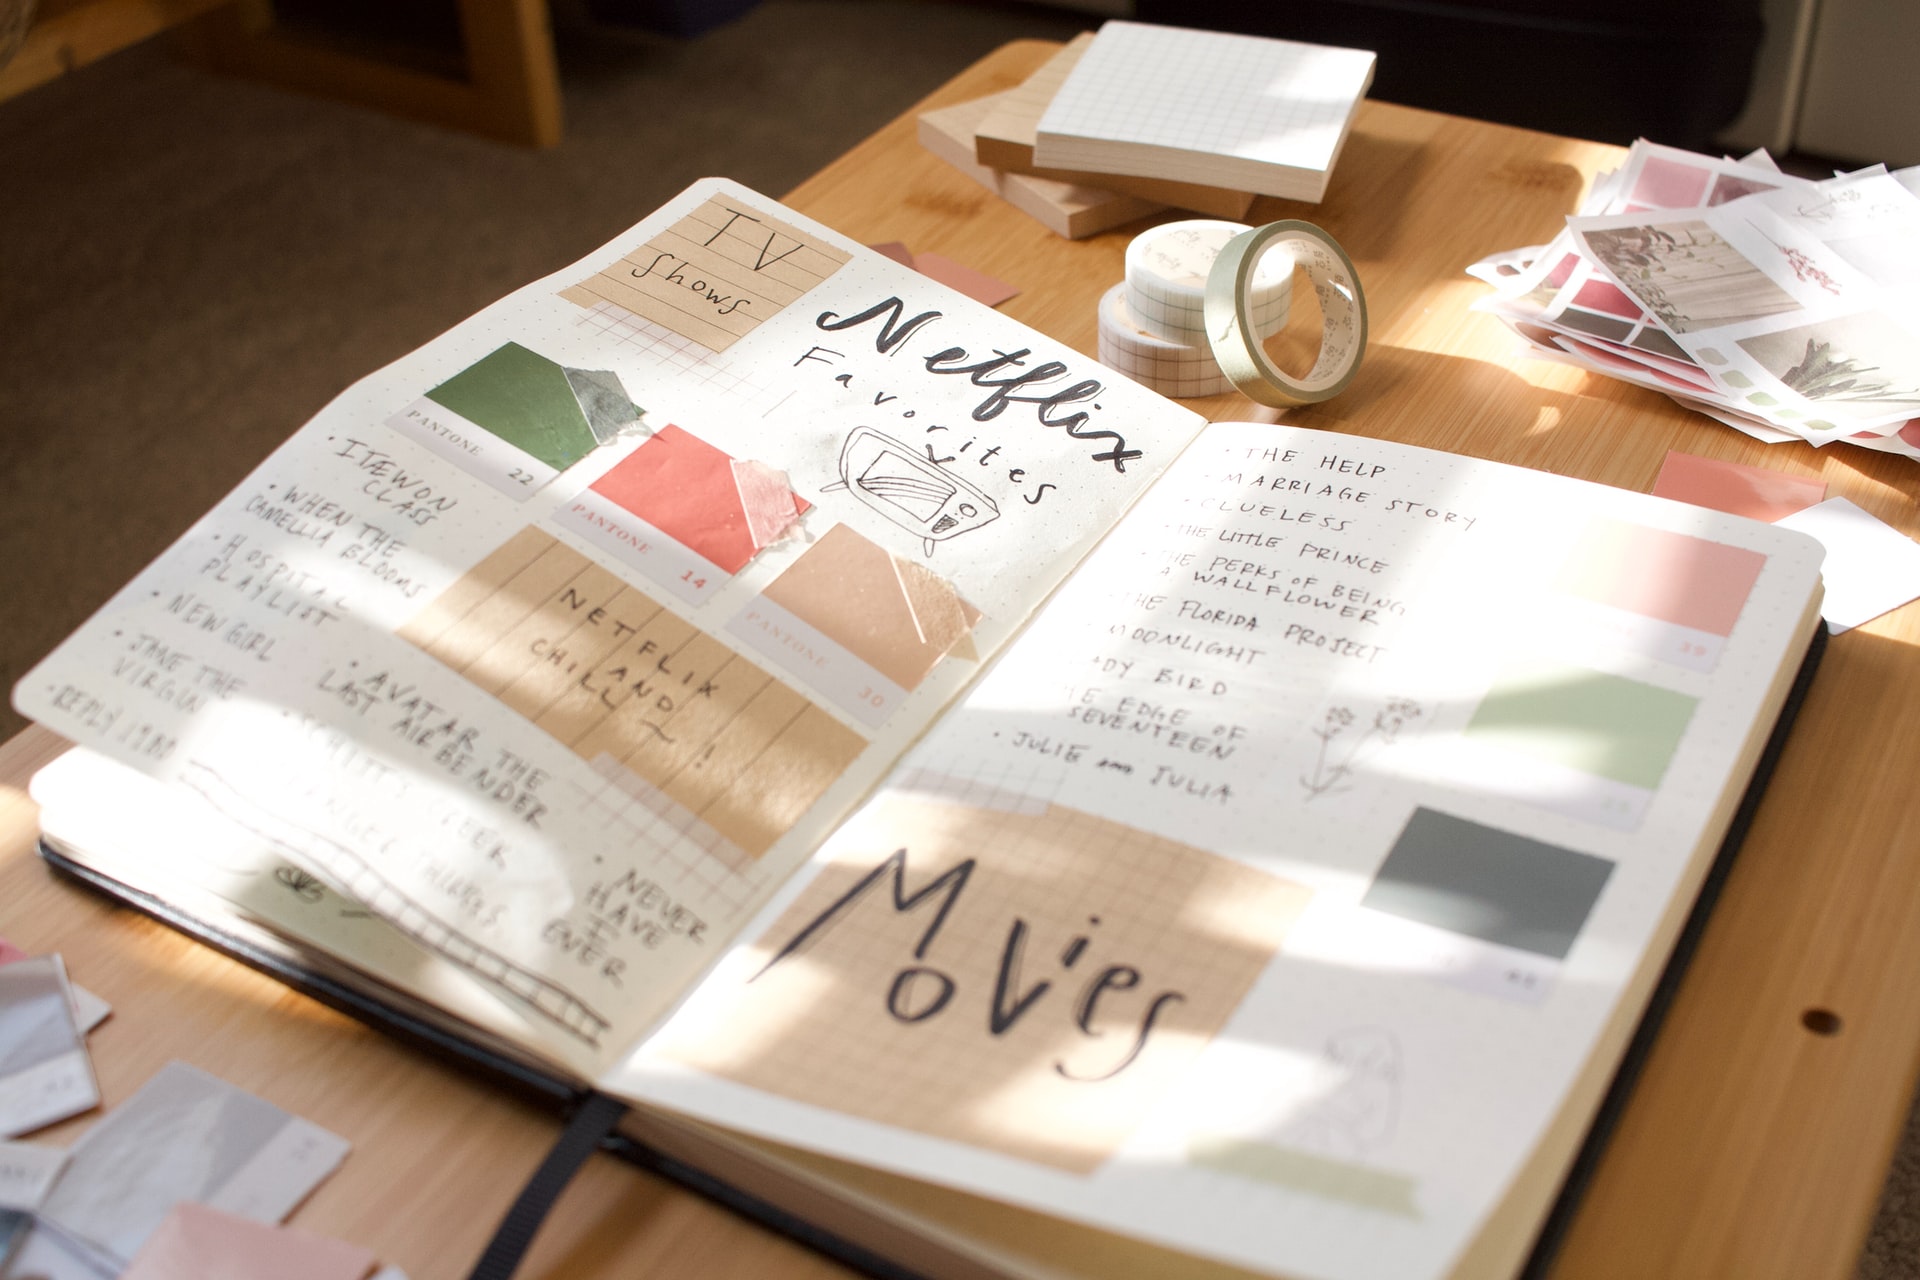 TV
Shows
Netflix
Favorites
PANTONE
22
PANTONE
14
PANTONE
30
• ITÆWON
CLASS
• WHEN THE
CAMELLIA BLOOMS
• HOSPITAL
PLAYLIST
• NEW GIRL
• JANE THE
VIRGIN
• REPLY 1988
NETFLIX
AND
CHILL~!
• AVATAR THE
LAST AIRBENDER
• SCHITT'S CREEK
THINGS
• NEVER
HAVE
I
EVER
• THE HELP
• MARRIAGE STORY
• CLUELESS
THE LITTLE PRINCE
THE PERKS OF BEING
A WALLFLOWER
THE FLORIDA PROJECT
MOONLIGHT
ADY BIRD
THE EDGE OF
SEVENTEEN
• JULIE AND JULIA
39
Movies